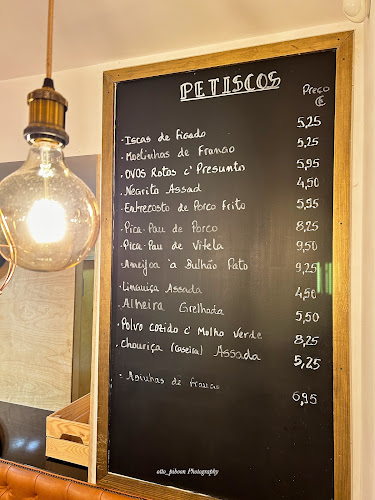 PETISCOS
Preço
€
. Iscas de figado 5,25
. Moelinhas de Frango 5,25
. Ovos Rotos c' Presunto 5,95
. Negrito Assad 4,50
. Entrecosto de Porco frito 5,95
. Pica-Pau de Porco 8,25
. Pica-Pau de Vitela 9,50
. Ameijoa à Bulhão Pato 9,25
. Linguiça Assada 4,50
. Alheira Grelhada 5,50
. Polvo cozido c' Molho Verde 8,25
. Chouriça (caseira) Assada 5,25
. Asinhas de frango 6,95
otto_pohoon Photography